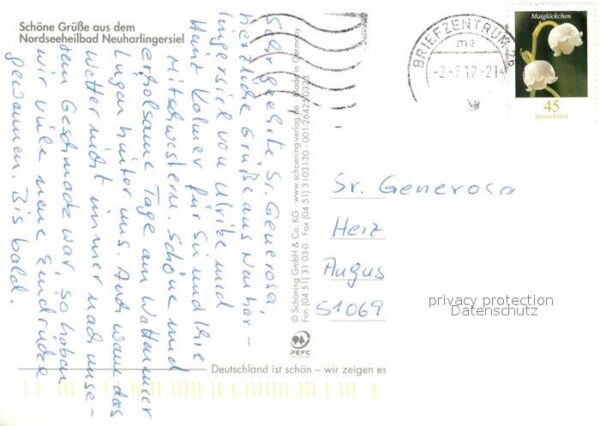 Schöne Grüße aus dem
Nordseeheilbad Neuharlingersiel
Sehr geehrte Sr. Generosa,
herzliche Grüße aus Neuhar-
lingersiel von Ulrike und
Kolmer für Sie und Ihre
Mitschwestern. Schöne und
erholsame Tage am Wattenmeer
liegen hinter uns. Auch wenn das
Wetter nicht immer nach unse-
rem Geschmack war, so haben
wir viele neue Eindrücke
gewonnen. Bis bald.
© Schöning GmbH & Co. KG · www.schoening-verlag.de · Made in Germany
Fon (04 51) 31 03-0 · Fax (04 51) 3103130 · 001
PEFC
Deutschland ist schön – wir zeigen es
BRIEFZENTRUM 26
ma
-2.-7.12-21
Maiglöckchen
45
Deutschland
Sr. Generosa
Heiz
Augus
51069
privacy protection
Datenschutz